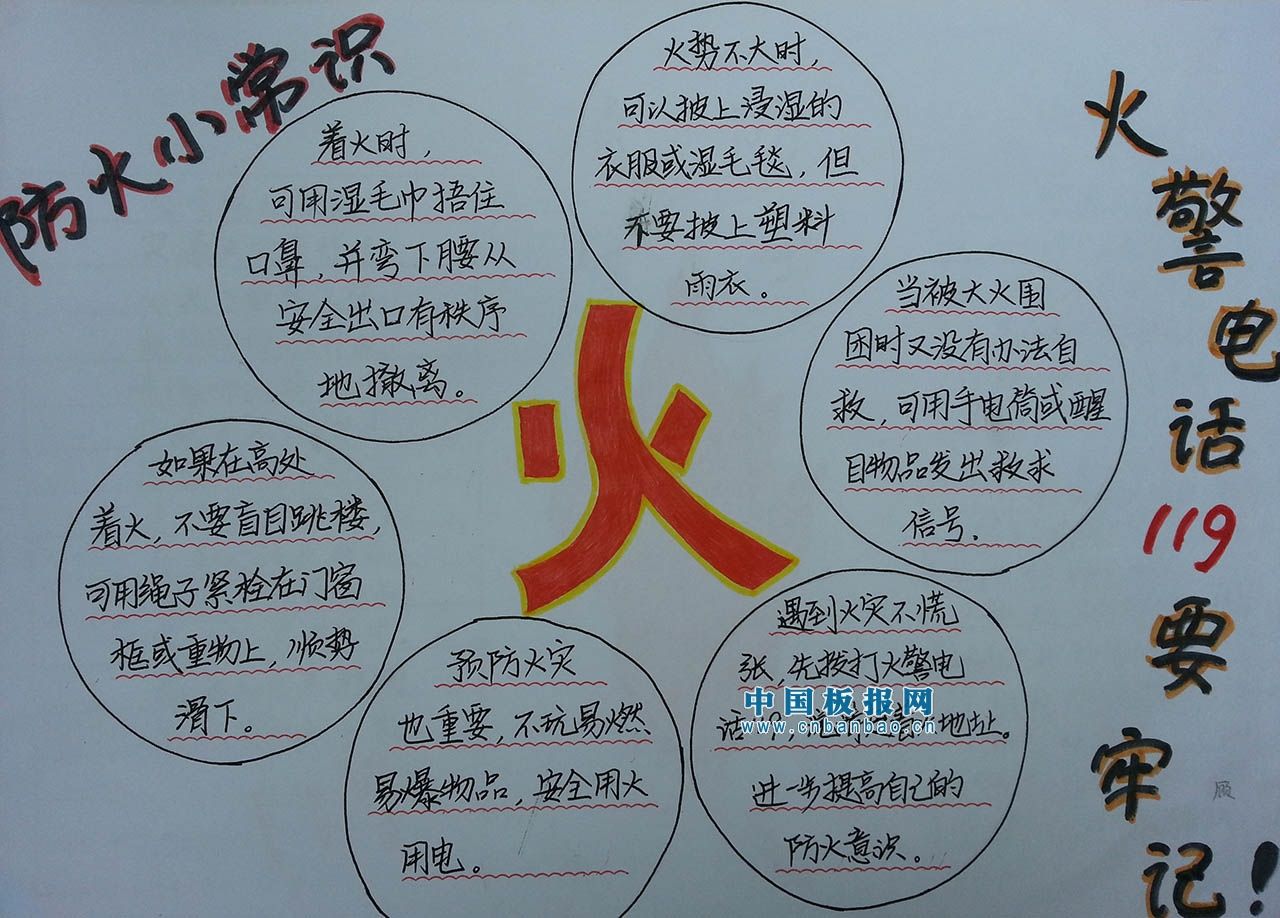 防火小常识
着火时，
可用湿毛巾捂住
口鼻，并弯下腰从
安全出口有秩序
地撤离。
火势不大时，
可以披上浸湿的
衣服或湿毛毯，但
不要披上塑料
雨衣。
当被大火围
困时又没有办法自
救，可用手电筒或醒
目物品发出救求
信号.
如果在高处
着火，不要盲目跳楼，
可用绳子紧栓在门窗
框或重物上，顺势
滑下。
预防火灾
也重要，不玩易燃
易爆物品，安全用火
用电。
遇到火灾不慌
张，先拨打火警电
话 地址。
进一步提高自己的
防火意识。
火
火警电话119要牢记！
中国板报网
www.cnbanbao.cn
顾